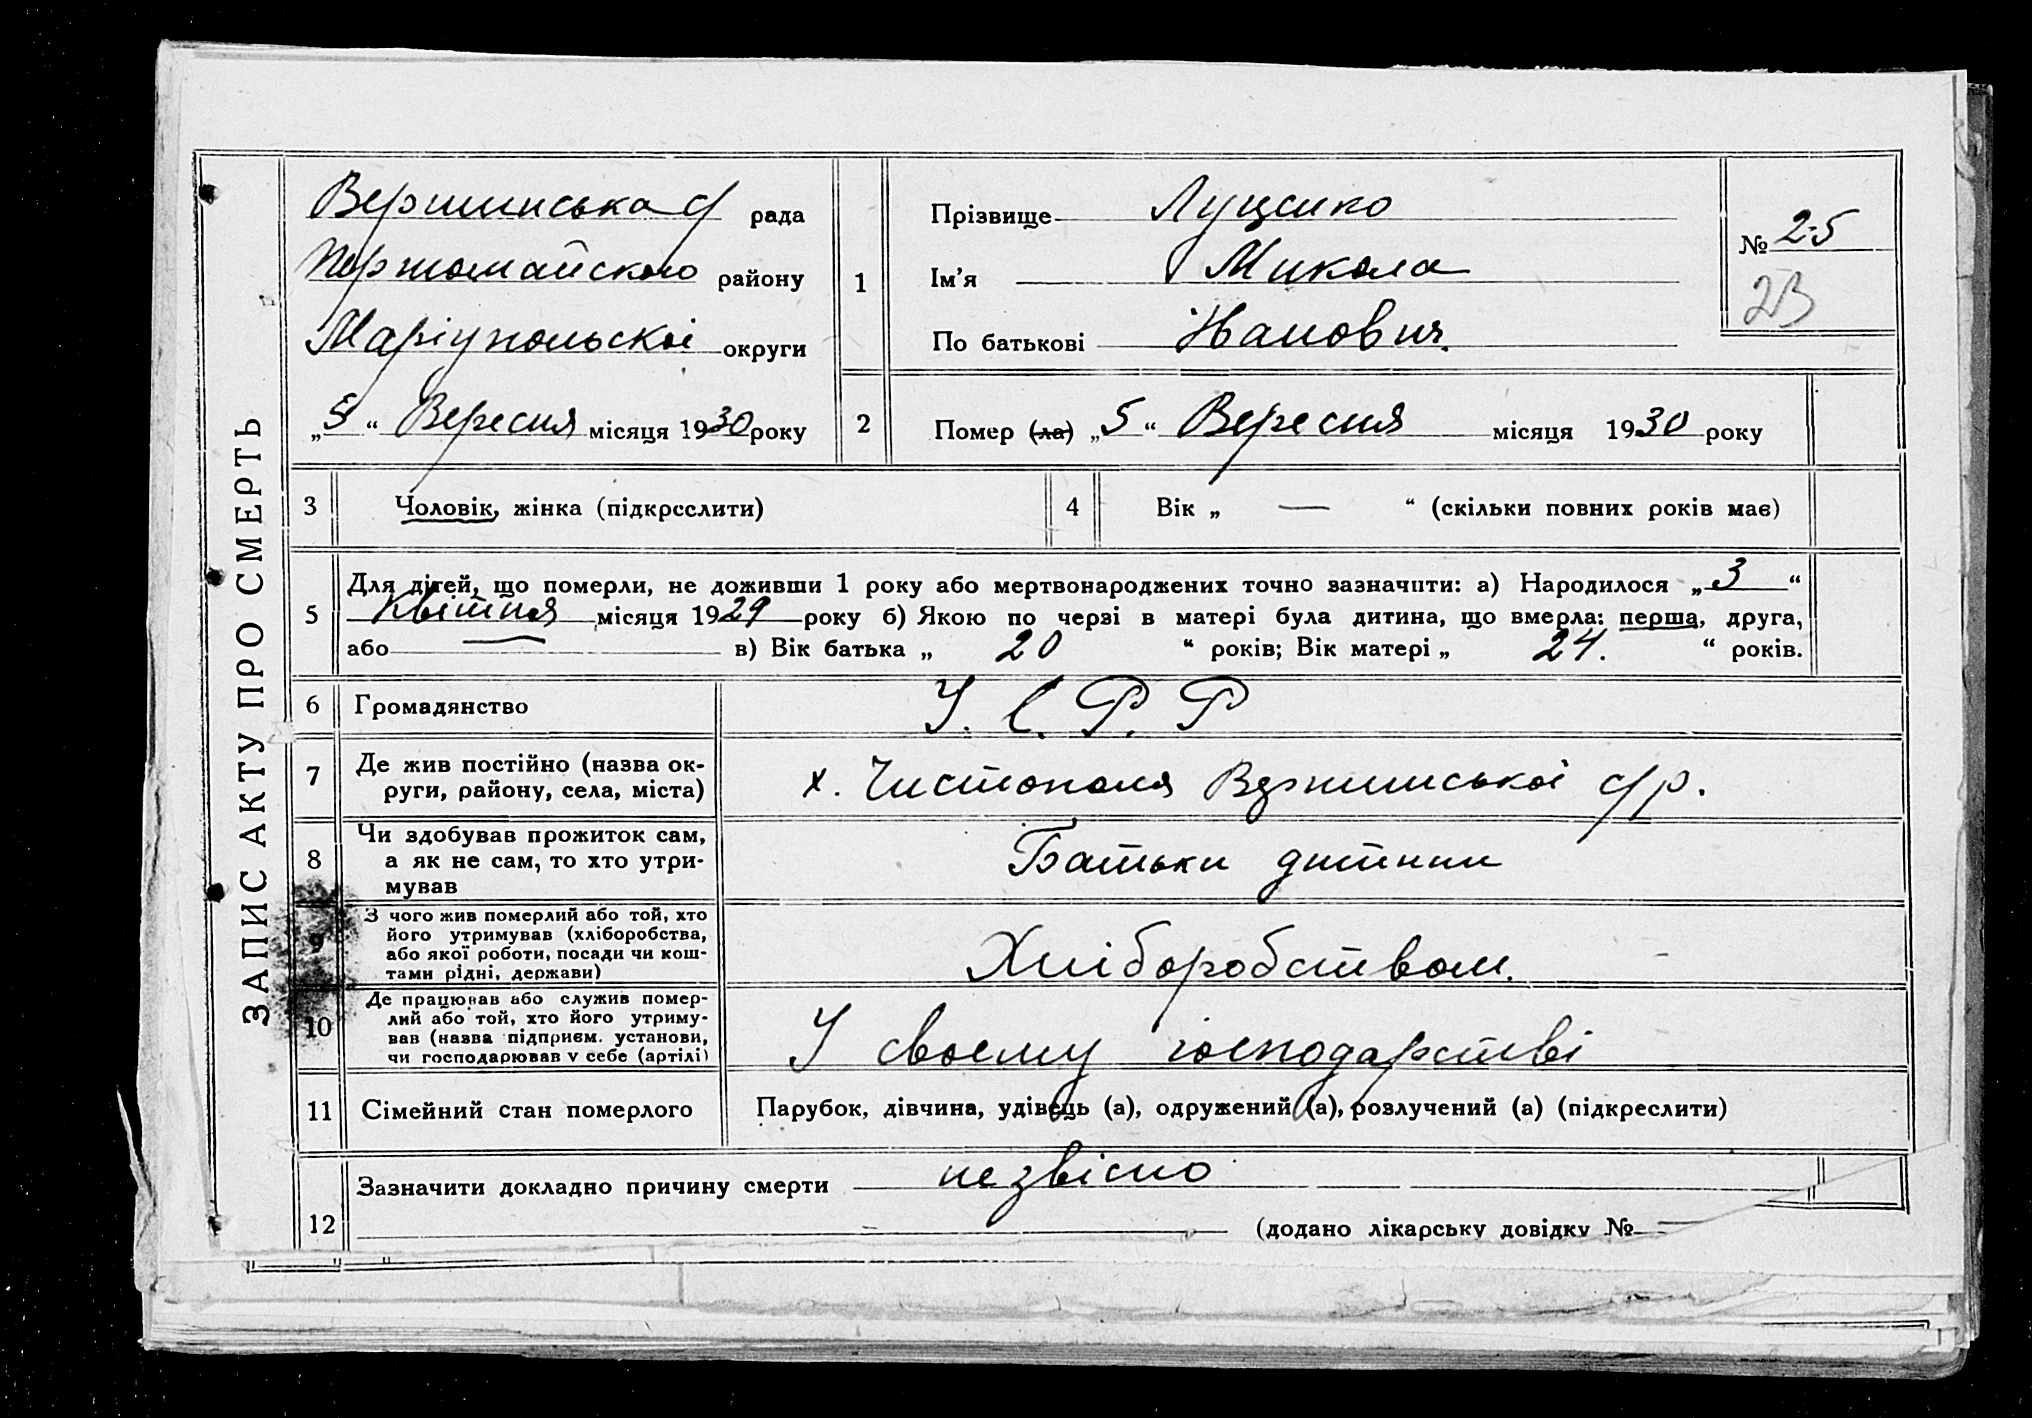 ЗАПИС АКТУ ПРО СМЕРТЬ
Вершинська с/ рада
Першомайського району
Маріупольскої округи
„5“ Вересня місяця 1930 року
1
Прізвище Луценко
Ім'я Микола
По батькові Іванович.
№ 25
23
2
Помер (ла) „5“ Вересня місяця 1930 року
3 Чоловік, жінка (підкреслити)
4 Вік „ — “ (скільки повних років має)
5
Для дітей, що померли, не доживши 1 року або мертвонароджених точно зазначити: а) Народилося „3“
Квітня місяця 1929 року б) Якою по черзі в матері була дитина, що вмерла: перша, друга,
або — в) Вік батька „ 20 “ років; Вік матері „ 24. “ років.
6 Громадянство У. С. Р. Р
7 Де жив постійно (назва ок-
руги, району, села, міста)
х. Чистополя Вершинської с/р.
8 Чи здобував прожиток сам,
а як не сам, то хто утри-
мував
Батьки дитини
9 З чого жив померлий або той, хто
його утримував (хліборобства,
або якої роботи, посади чи кош-
тами рідні, держави)
Хліборобством.
10 Де працював або служив помер-
лий або той, хто його утриму-
вав (назва підприєм. установи,
чи господарював у себе (артілі)
У своєму господарстві
11 Сімейний стан померлого Парубок, дівчина, удівець (а), одружений (а), розлучений (а) (підкреслити)
12
Зазначити докладно причину смерти незвісно
(додано лікарську довідку №